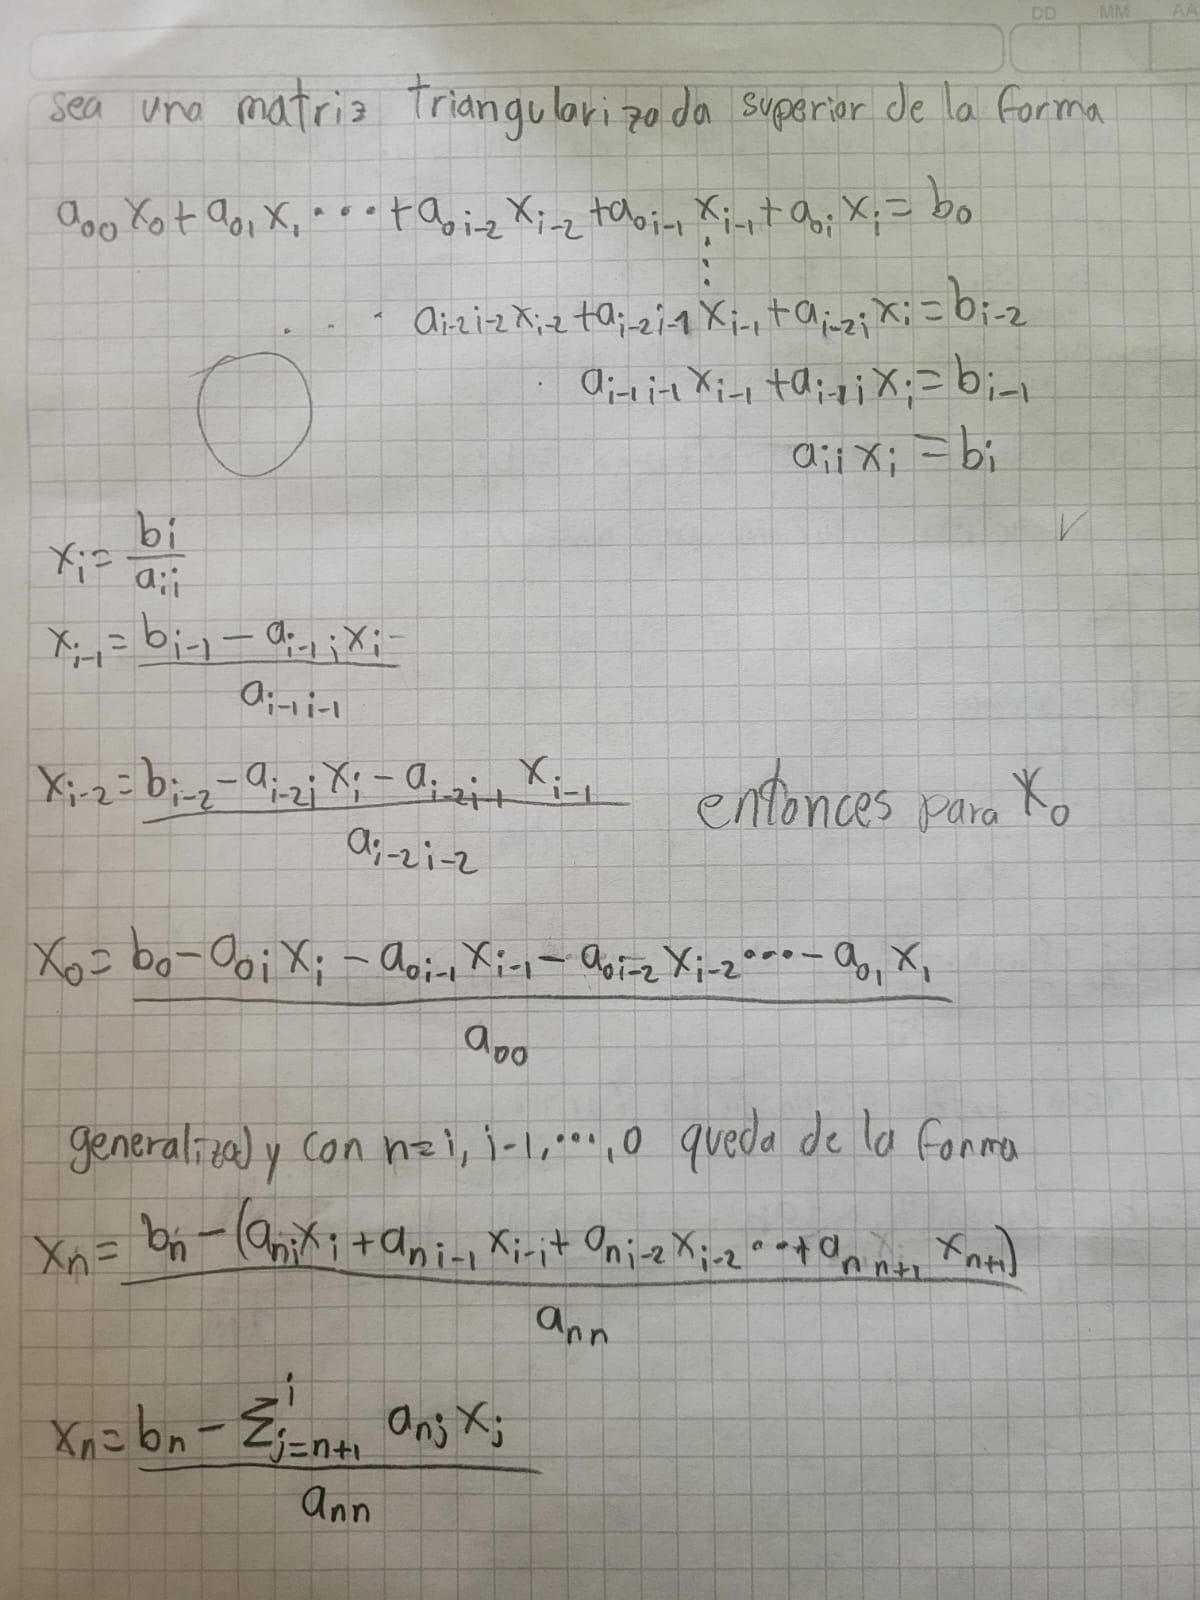 DD MM AA
sea una matriz triangularizada superior de la forma
a₀₀ x₀ + a₀₁ x₁ ···+ a₀ᵢ₋₂ xᵢ₋₂ + a₀ᵢ₋₁ xᵢ₋₁ + a₀ᵢ xᵢ = b₀
aᵢ₋₂ᵢ₋₂ xᵢ₋₂ + aᵢ₋₂ᵢ₋₁ xᵢ₋₁ + aᵢ₋₂ᵢ xᵢ = bᵢ₋₂
aᵢ₋₁ᵢ₋₁ xᵢ₋₁ + aᵢ₋₁ᵢ xᵢ = bᵢ₋₁
aᵢᵢ xᵢ = bᵢ
xᵢ = bᵢ / aᵢᵢ
xᵢ₋₁ = bᵢ₋₁ - aᵢ₋₁ᵢ xᵢ / aᵢ₋₁ᵢ₋₁
xᵢ₋₂ = bᵢ₋₂ - aᵢ₋₂ᵢ xᵢ - aᵢ₋₂ᵢ₋₁ xᵢ₋₁ / aᵢ₋₂ᵢ₋₂ entonces para x₀
x₀ = b₀ - a₀ᵢ xᵢ - a₀ᵢ₋₁ xᵢ₋₁ - a₀ᵢ₋₂ xᵢ₋₂ ···- a₀₁ x₁ / a₀₀
y con n=i, i-1,···,0 queda de la forma
xₙ = bₙ - (aₙᵢ xᵢ + aₙᵢ₋₁ xᵢ₋ᵢ + aₙᵢ₋₂ xᵢ₋₂ ··+ aₙₙ₊₁ xₙ₊₁) / aₙₙ
xₙ = bₙ - Σⁱⱼ₌ₙ₊₁ aₙⱼ xⱼ / aₙₙ